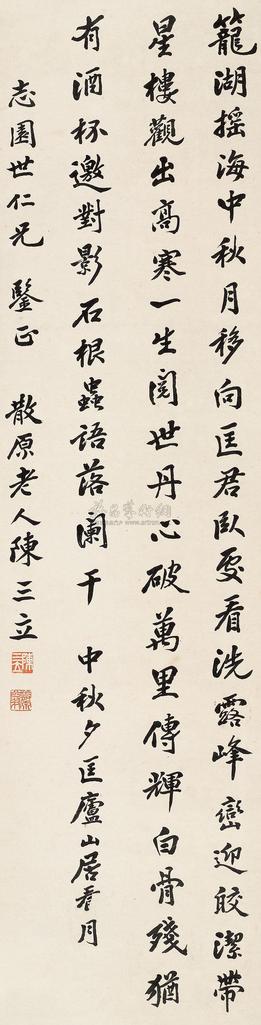 籠湖搖海中秋月移向匡君臥處看洗露峰巒迎皎潔帶
星樓觀出高寒一生閱世丹心破萬里傳輝白骨殘猶
有酒杯邀對影石根蟲語落闌干 中秋夕匡廬山居看月
志園世仁兄 鑒正 散原老人陳三立